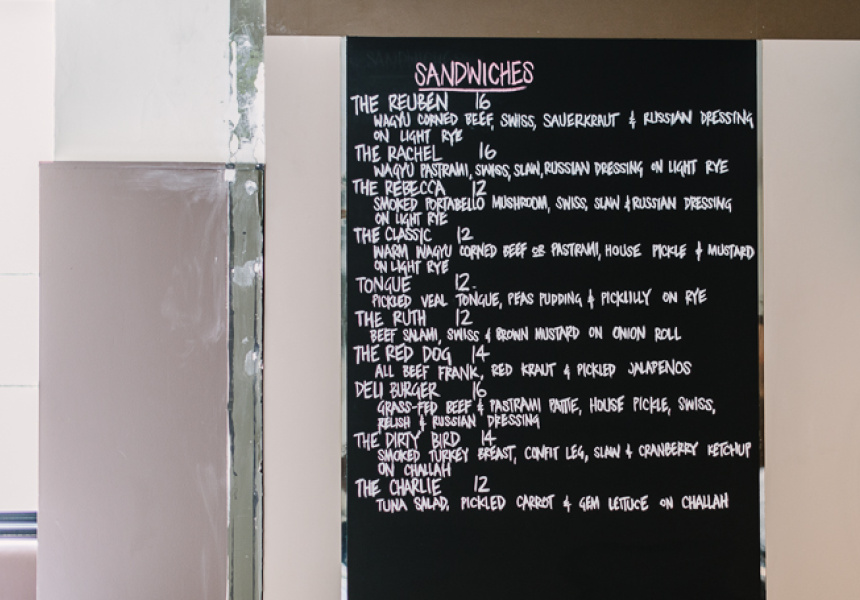 SANDWICHES
THE REUBEN 16
WAGYU CORNED BEEF, SWISS, SAUERKRAUT & RUSSIAN DRESSING
ON LIGHT RYE
THE RACHEL 16
WAGYU PASTRAMI, SWISS, SLAW, RUSSIAN DRESSING ON LIGHT RYE
THE REBECCA 12
SMOKED PORTABELLO MUSHROOM, SWISS, SLAW & RUSSIAN DRESSING
ON LIGHT RYE
THE CLASSIC 12
WARM WAGYU CORNED BEEF OR PASTRAMI, HOUSE PICKLE & MUSTARD
ON LIGHT RYE
TONGUE 12.
PICKLED VEAL TONGUE, PEAS PUDDING & PICKLILLY ON RYE
THE RUTH 12
BEEF SALAMI, SWISS & BROWN MUSTARD ON ONION ROLL
THE RED DOG 14
ALL BEEF FRANK, RED KRAUT & PICKLED JALAPENOS
DELI BURGER 16
GRASS-FED BEEF & PASTRAMI PATTIE, HOUSE PICKLE, SWISS,
RELISH & RUSSIAN DRESSING
THE DIRTY BIRD 14
SMOKED TURKEY BREAST, CONFIT LEG, SLAW & CRANBERRY KETCHUP
ON CHALLAH
THE CHARLIE 12
TUNA SALAD, PICKLED CARROT & GEM LETTUCE ON CHALLAH